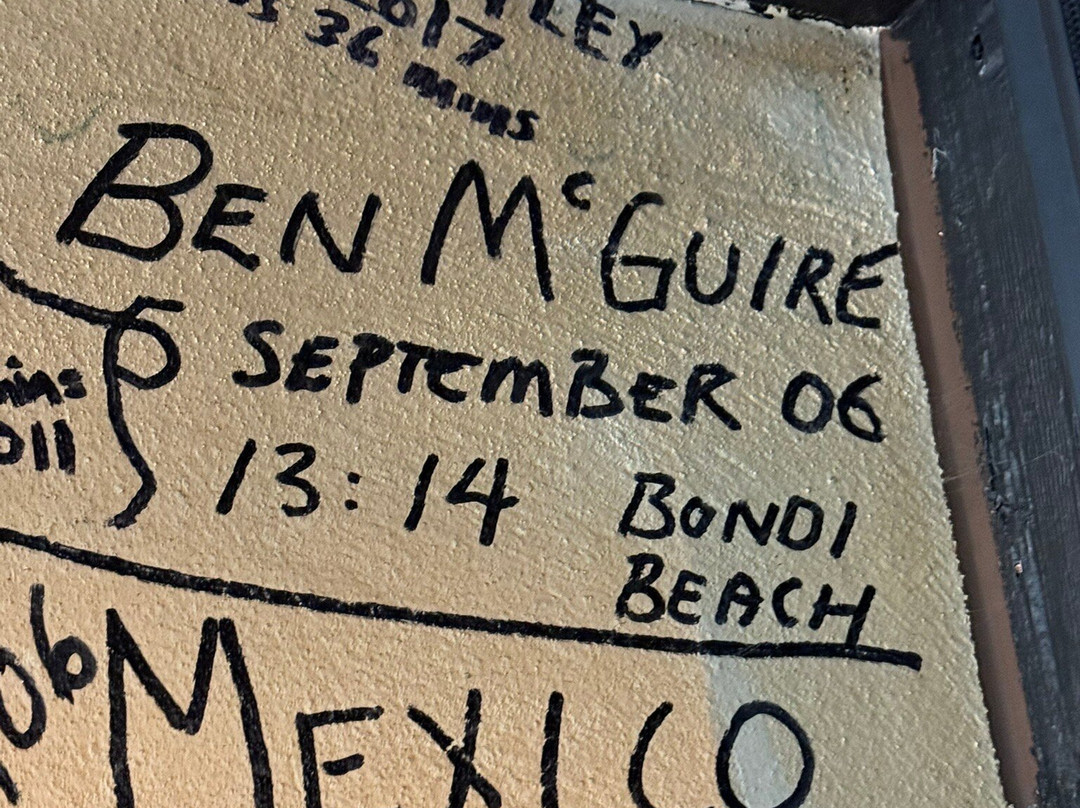 2017
36 MINS
BEN McGUIRE
SEPTEMBER 06
13:14 BONDI
BEACH
011
06
MEXICO